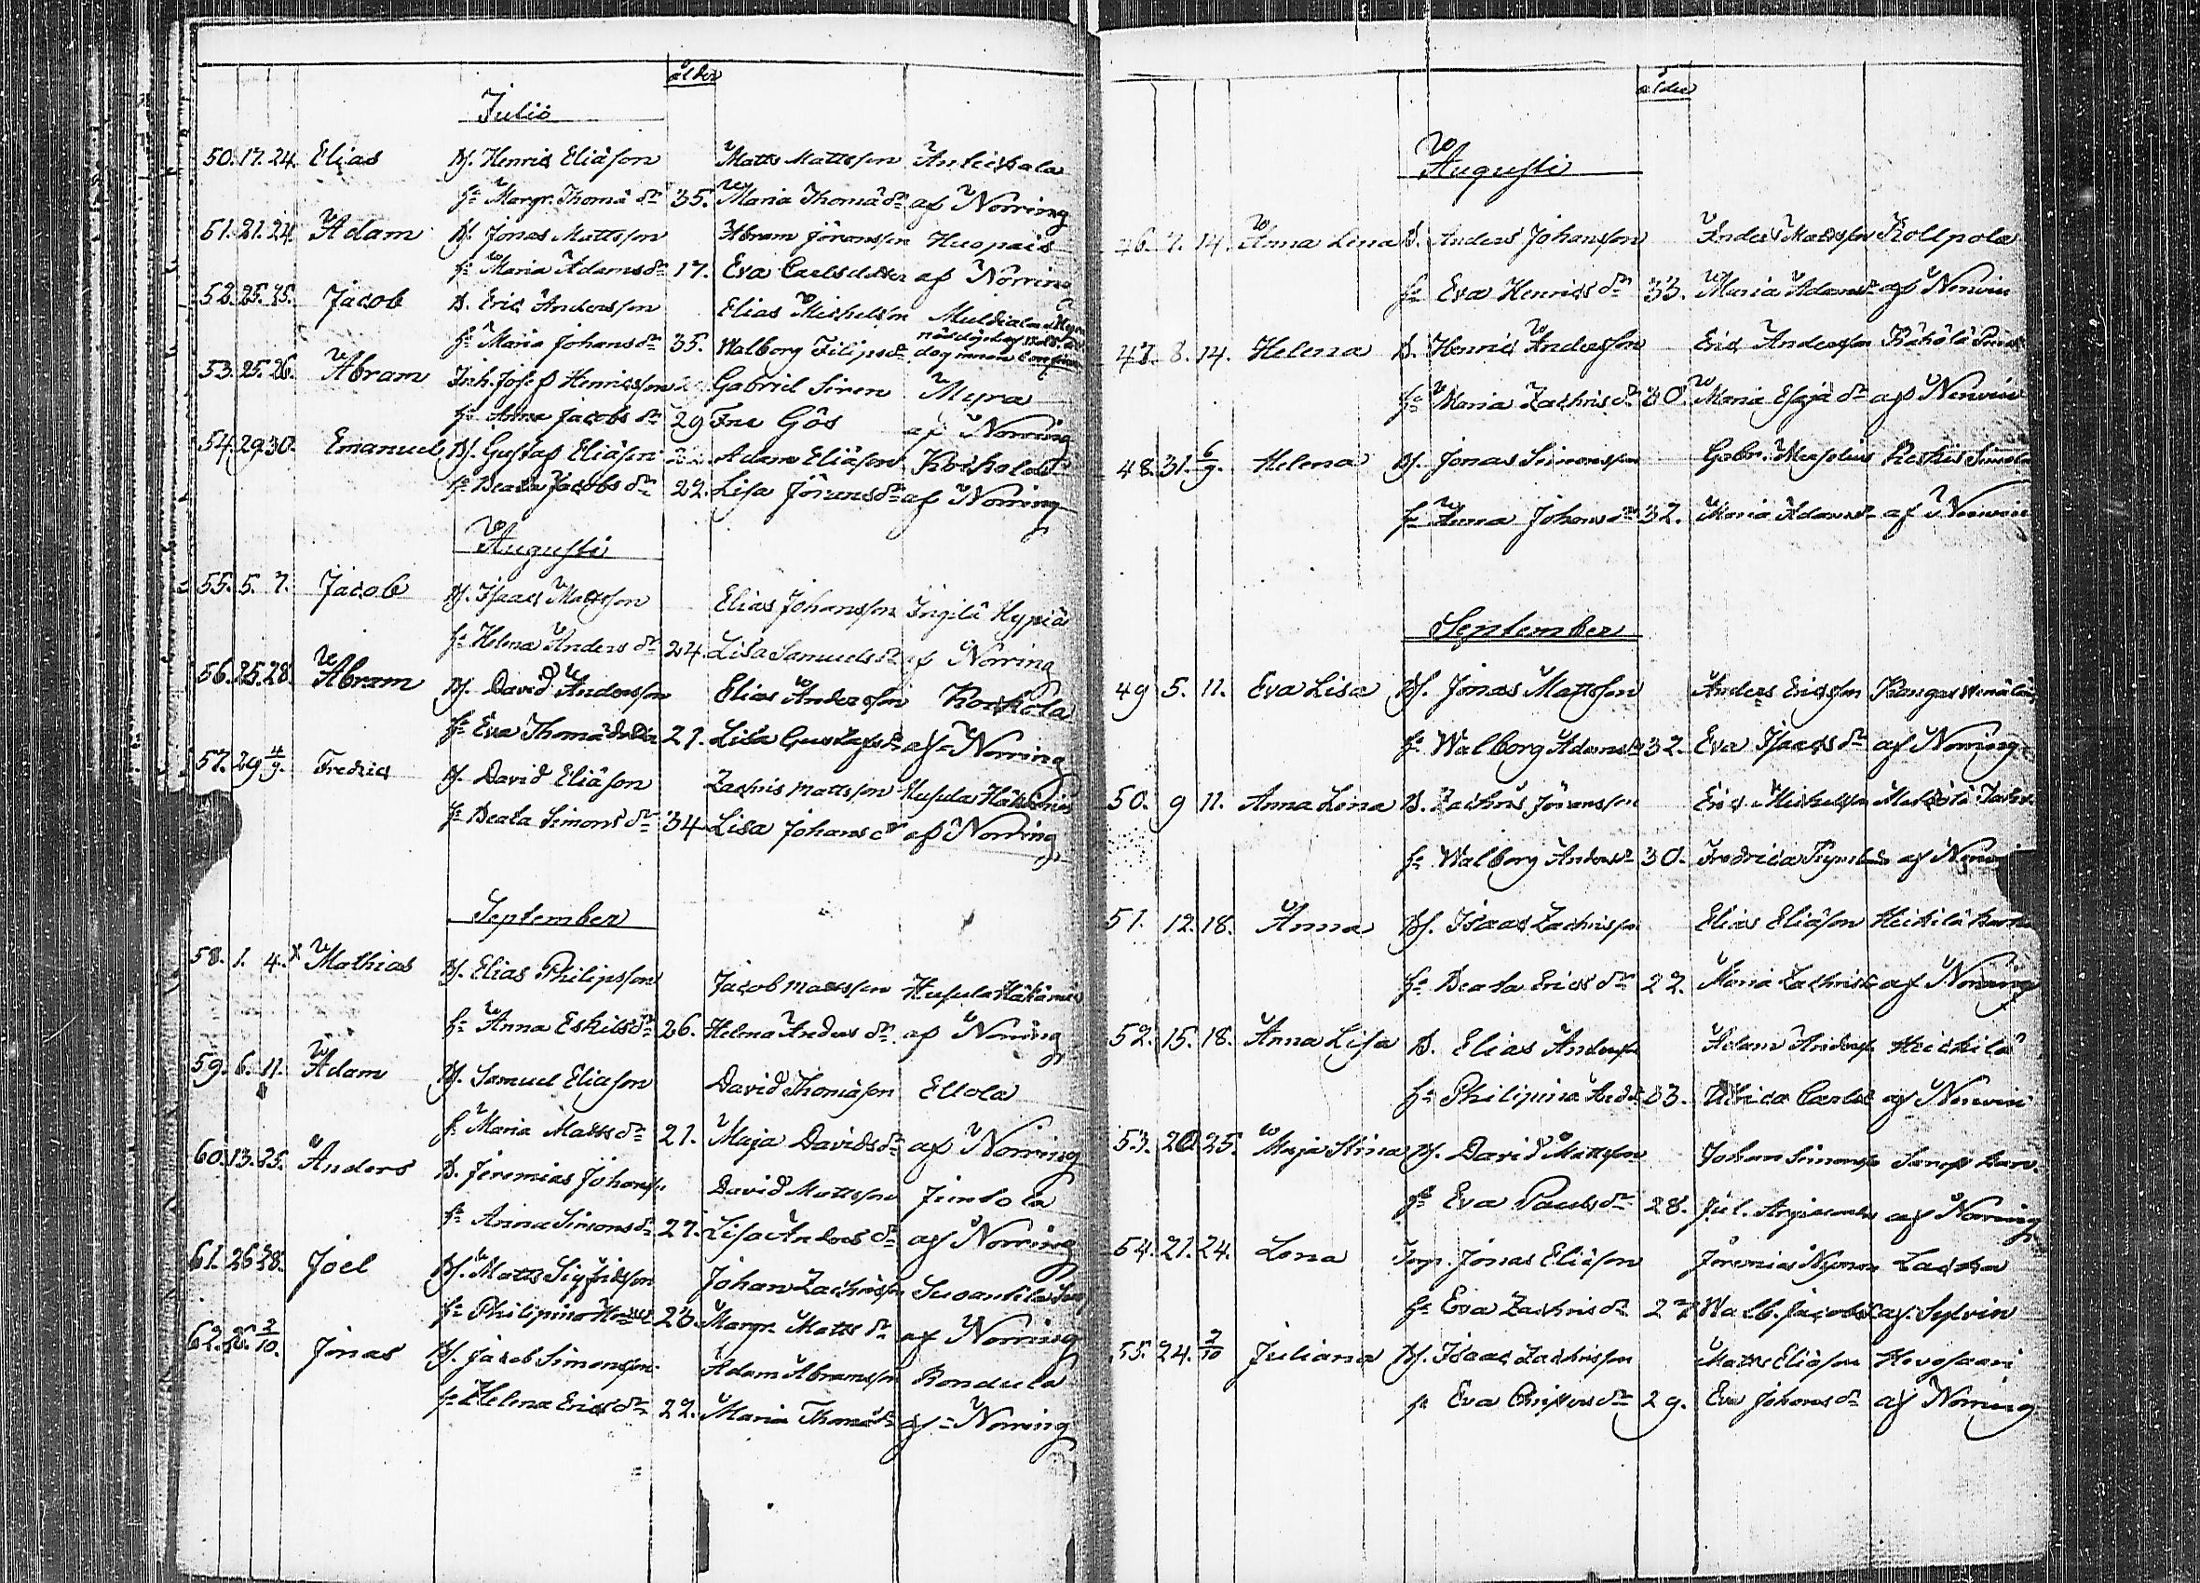 ålder
Julii
50. 17. 24. Elias B. Henric Eliäson Matts Mattsson Anteikala
hu Margr. Thomä dr 35. Maria Thomä dr af Norring
51. 21. 24. Adam B. Jonas Mattsson Abram Göransson Huopais
hu Maria Adams dr 17. Eva Carlsdotter af Norring
52. 25. 25. Jacob B. Eric Andersson Elias Michelson
hu Maria Johans dr 35. Walborg Filips dr
53. 25. 26. Abram Inh. Josef Henricsson Gabriel Siren Myra
hu Anna Jacobs dr 29 Fru Gös af Norring
54. 29. 30. Emanuel B. Gustaf Eliäson Adam Eliäson
hu Beata Jacobs dr 22. Lisa Görans dr af Norring
Augusti
55. 5. 7. Jacob B. Isaac Mattsson Elias Johansson Ingilä Hypiä
hu Helena Anders dr 24. Lisa Samuels dr af Norring
56. 25. 28. Abram B. David Andersson Elias Andersson Korkola
hu Eva Thomä dotter 21. Lisa Gustafs dr af Norring
57. 29 4/9. Fredric B. David Eliäson Zachris Mattsson Husula
hu Beata Simons dr 34 Lisa Johans dr af Norring
September
58. 1. 4. x Mathias B. Elias Philipsson Jacob Mattsson Husula
hu Anna Eskils dr 26. Helena Anders dr af Norring
59. 6. 11. Adam B. Samuel Eliason David Thomäson Ellola
hu Maria Matts dr 21. Maja Davids dr af Norring
60. 13. 25. Anders B. Jeremias Johanss. David Mattsson
hu Anna Simons dr 27. Lisa Anders dr af Norring
61. 26 28. Joel B. Matts Sigfridsson Johan Zachrisson
hu Philipina 23. Margr. Matts dr af Norring
62. 26. 2/10. Jonas B. Jacob Simonsson Adam Abramsson Rondula
hu Helena Erics dr 22. Maria Thomä dr af Norring
ålder
Augusti
46. 7. 14. Anna Lena B. Anders Johansson Anders Mattsson Kollpola
hu Eva Henrics dr 33. Maria Adams dr af
47. 8. 14. Helena B. Henric Andersson Eric Andersson
hu Maria Zachris dr 30. Maria Esajä dr af
48. 31. 6/9. Helena B. Jonas Simonsson Gabr.
hu Anna Johans dr 32. Maria Adams dr af
September
49 5. 11. Eva Lisa B. Jonas Mattsson Anders Ericsson
hu Walborg Adams dr 32. Eva Isaacs dr af Norring
50. 9 11. Anna Lena B. Zachris Göransson Eric Michelsson
hu Walborg Anders dr 30. Fredrica af
51. 12. 18. Anna B. Isaac Zachrisson Elias Eliäson Heikilä
hu Beata Erics dr 22. Maria Zachris dr af Norring
52. 15. 18. Anna Lisa B. Elias Andersson Adam Anderss. Heickilä
hu Philipina 33. Ulrica Carls dr af
53. 20. 25. Maja Stina B. David Mattsson Johan Simonsson
hu Eva Pauls dr 28. Jul. af Norring
54. 21. 24. Lena Jonas Eliäson Jeremias Nyman
hu Eva Zachris dr 27 Walb. Jacobs dr af Sylvin
55. 24. 2/10 Juliana B. Isaac Zachrisson Matts Eliäson Hevosaari
hu Eva Christers dr 29. Eva Johans dr af Norring